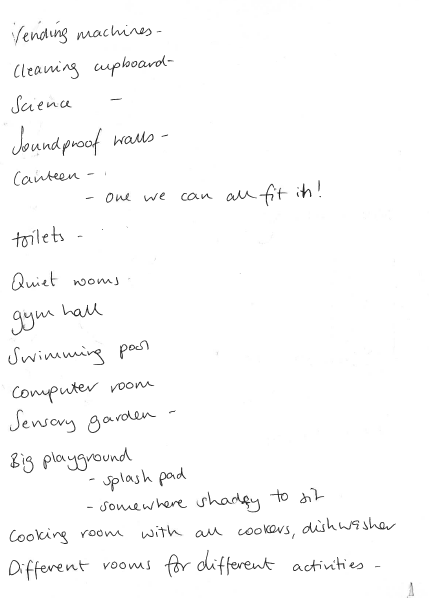 Vending machines -
Cleaning cupboard -
Science -
Soundproof walls -
Canteen -
- one we can all fit in!
toilets -
Quiet rooms
gym hall
Swimming pool
Computer room
Sensory garden -
Big playground
- splash pad
- somewhere shadey to sit
Cooking room with all cookers, dishwasher
Different rooms for different activities -
1